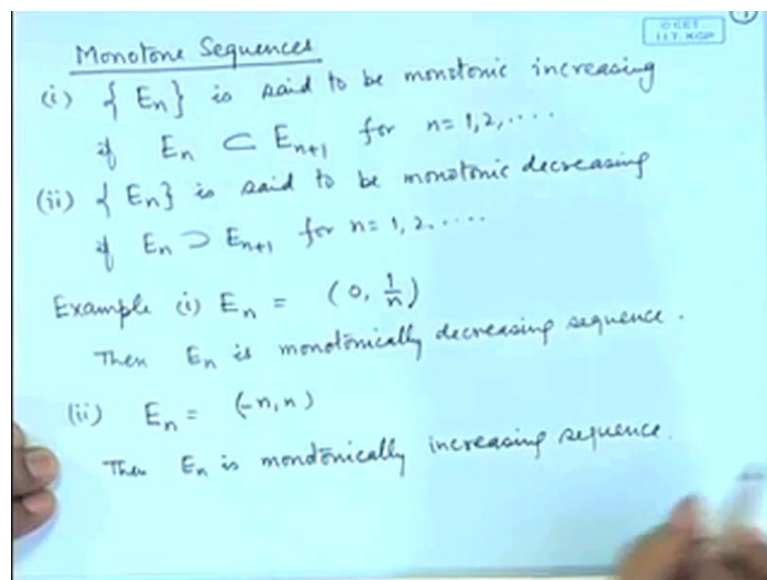 © CET
I.I.T. KGP
Monotone Sequences
(i) { En } is said to be monotonic increasing
if En ⊂ En+1 for n = 1, 2, ....
(ii) { En } is said to be monotonic decreasing
if En ⊃ En+1 for n = 1, 2, .....
Example (i) En = (0, 1/n)
Then En is monotonically decreasing sequence.
(ii) En = (-n, n)
Then En is monotonically increasing sequence.